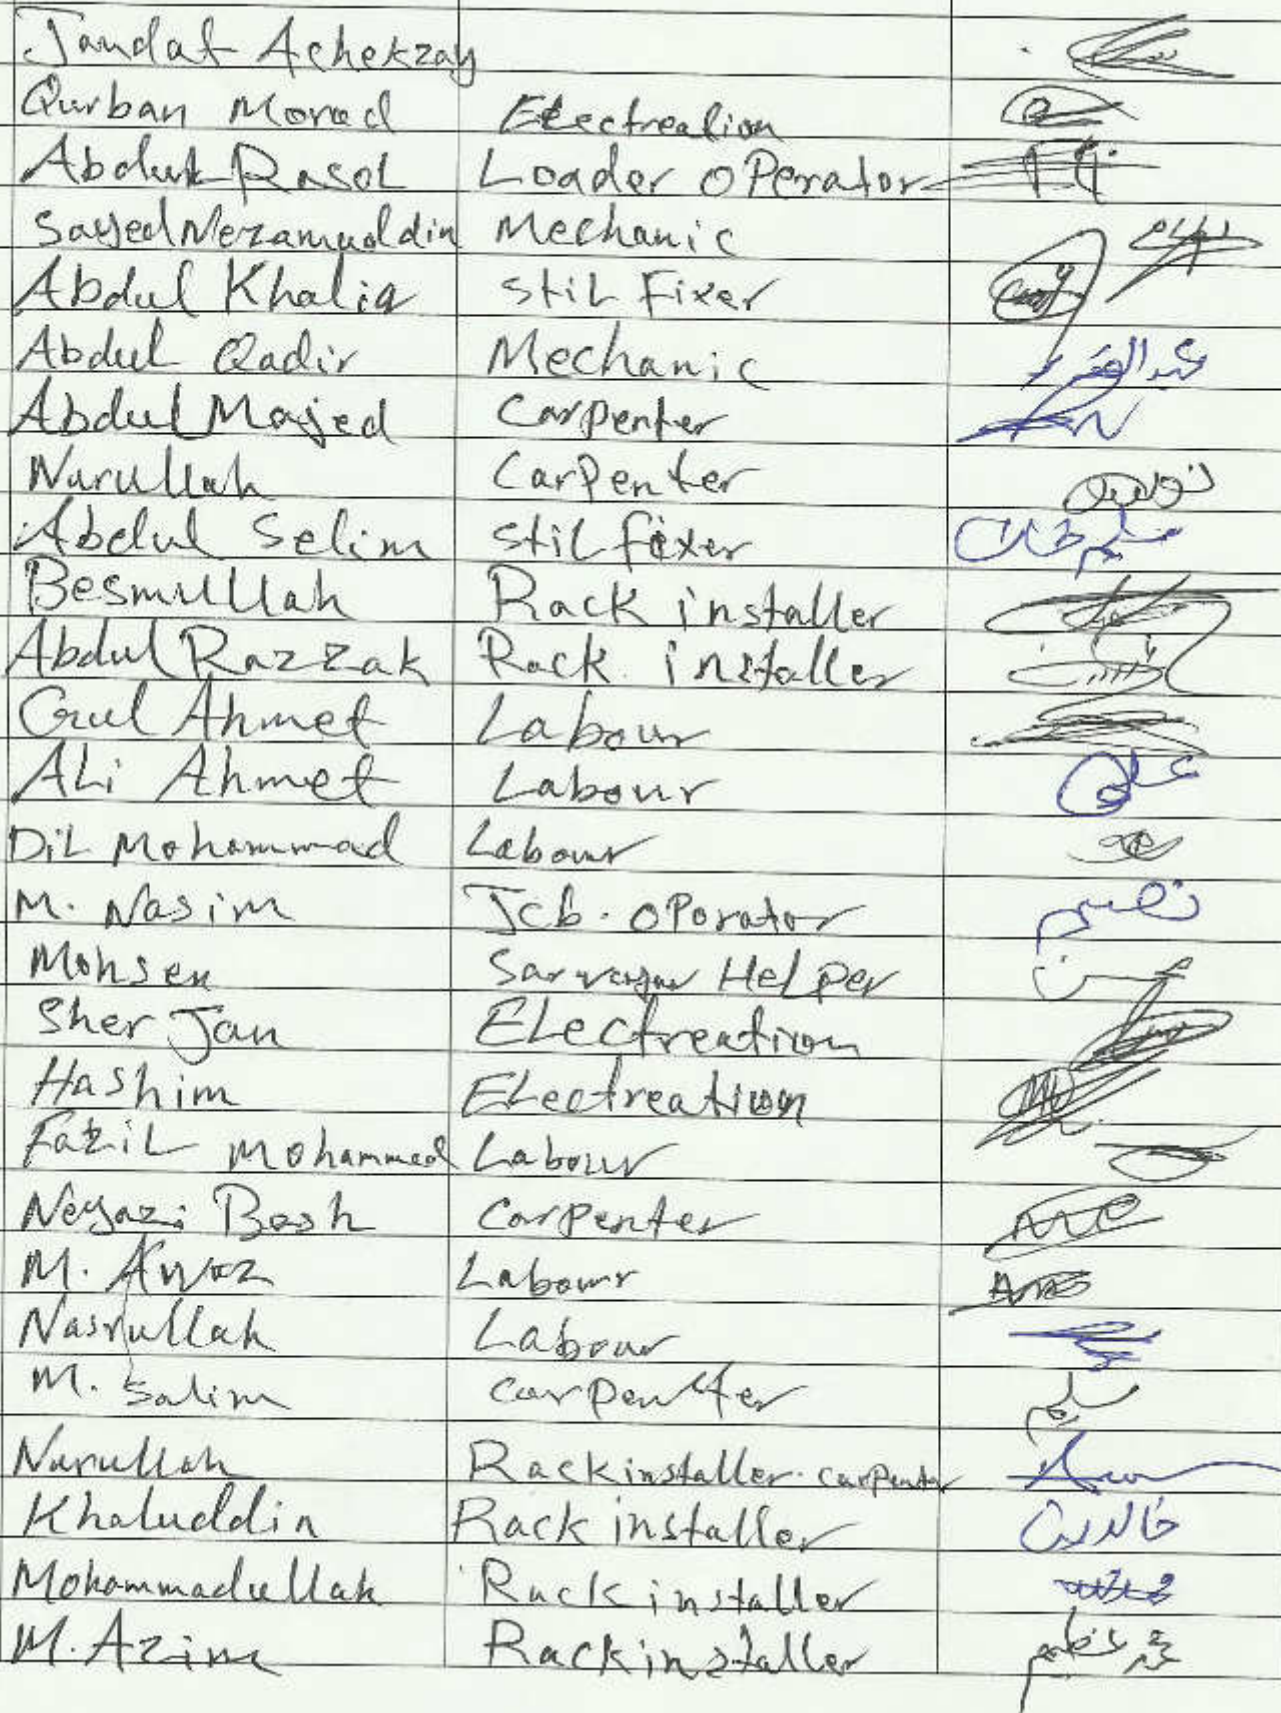 Jandat Achekzay
Qurban Morad Electrealion
Abdul Rasol Loader oPerator
Sayed Nezamuddin Mechanic
Abdul Khaliq Stil Fixer
Abdul Qadir Mechanic عبدالقدیر
Abdul Majed Carpenter
Nurullah Carpenter
Abdul Selim Stil fixer سلیم خان
Besmullah Rack installer
Abdul Razzak Rack installer
Gul Ahmet Labour
ALi Ahmet Labour علی
DiL Mohammad Labour
M. Nasim Jcb. oPorator نصیم
Mohsen Helper محسن
Sher Jan ELectreation
Hashim ELectreation
Fazil Mohammed Labour
Neyazi Bash Carpenter
M. Awaz Labour
Nasrullah Labour
M. Salim carpenter سلیم
Nurullah Rack installer. carpenter
Khaluddin Rack installer خالدین
Mohammadullah Rack installer
M. Azim Rack installer محمد عظیم